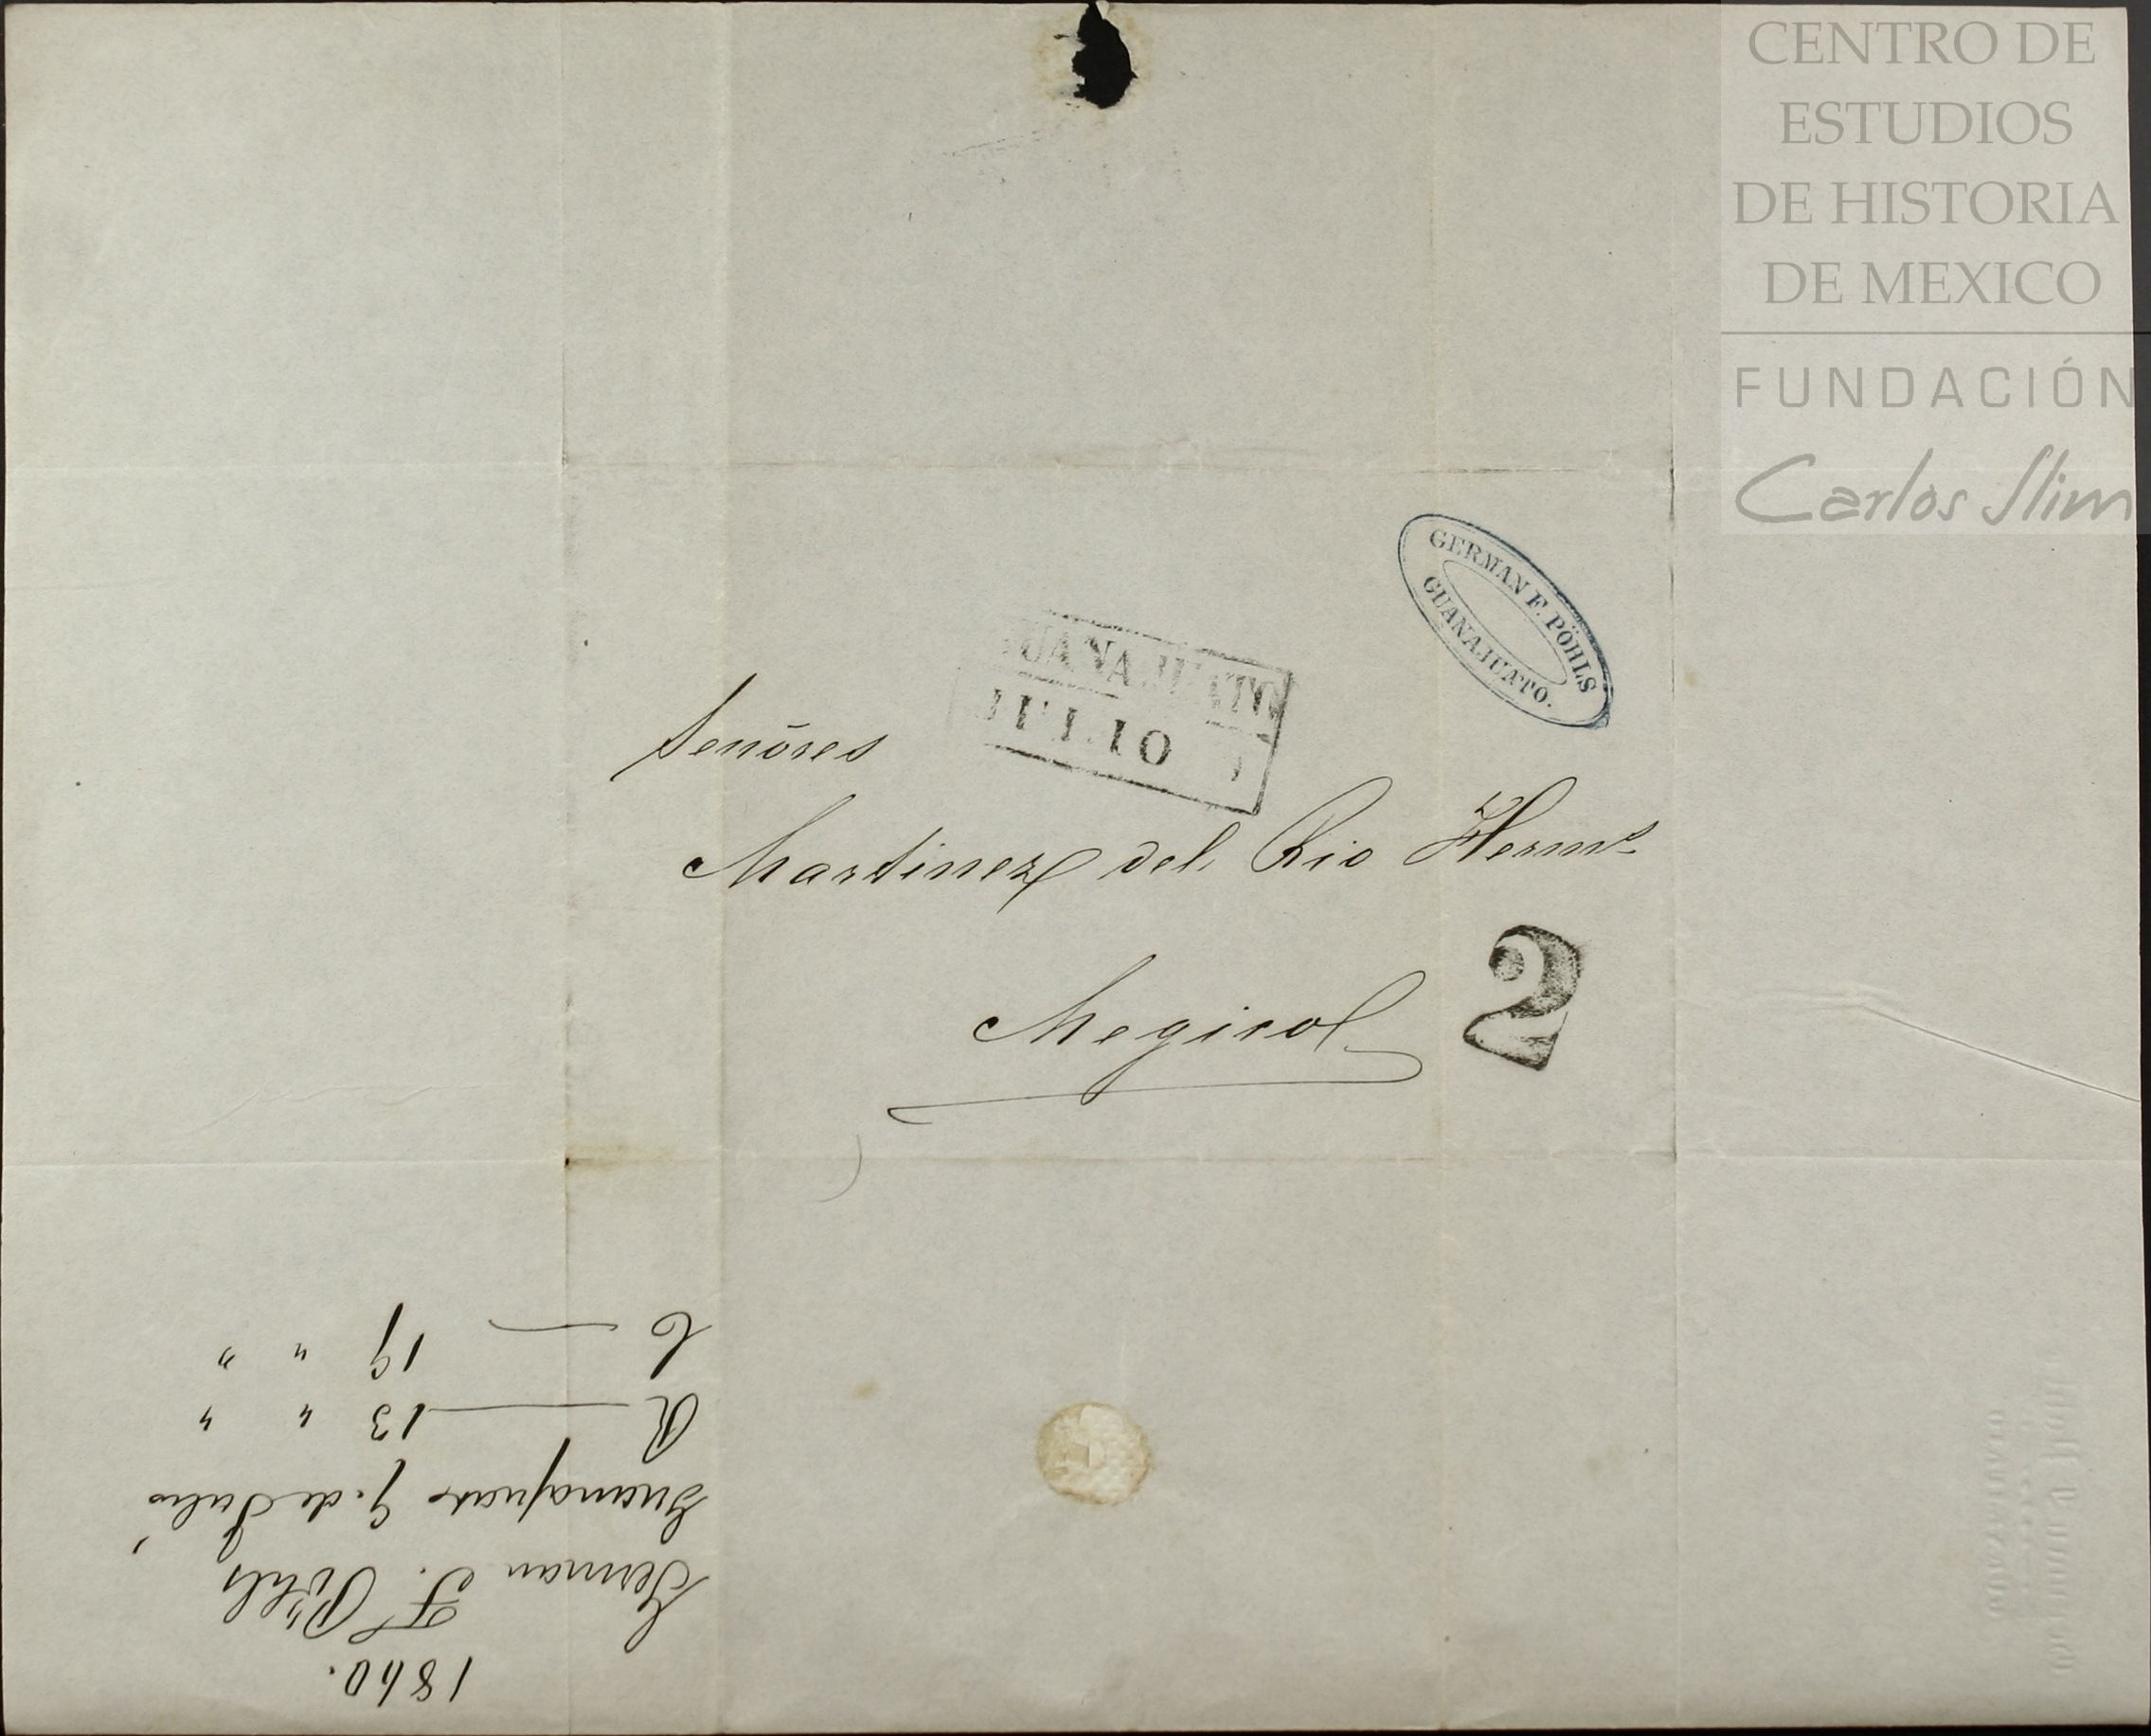 CENTRO DE
ESTUDIOS
DE HISTORIA
DE MEXICO
FUNDACIÓN
Carlos Slim
GERMAN F. PÖHLS
GUANAJUATO.
GUANAJUATO
JULIO
Señores
Martinez del Rio Herms
Megico
2
1860.
German F. Pöhls
Guanajuato 9. de Julio
R — 13 " "
C — 19 " "